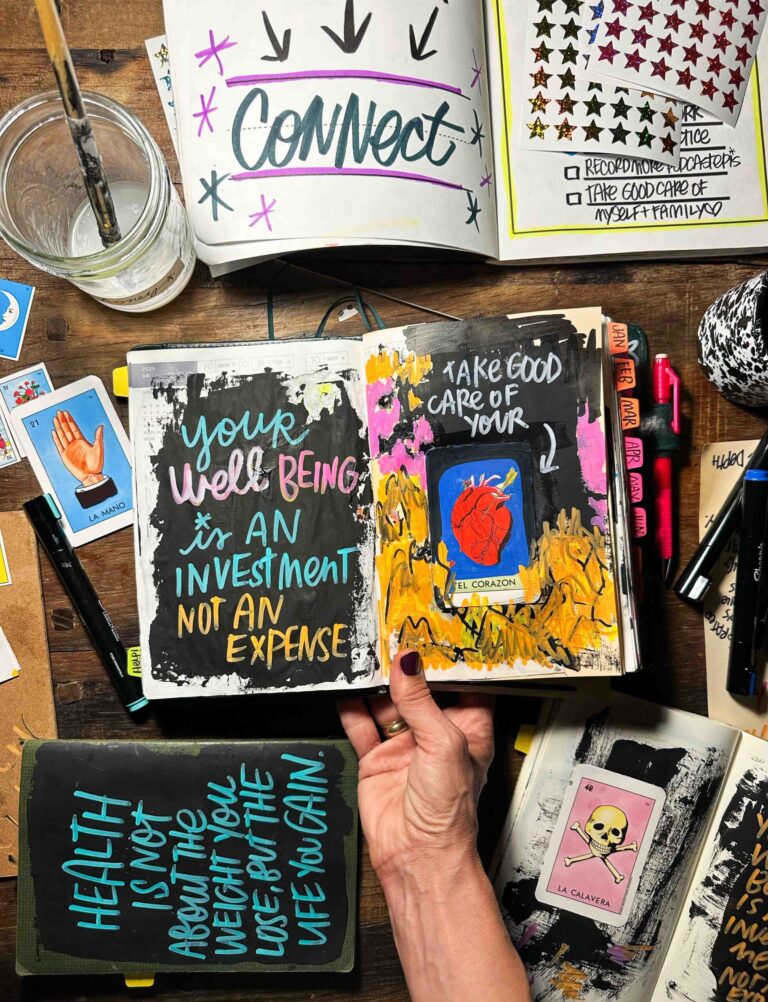 Connect
RK
TICE
RECORD MORE PODCAST EPIS
TAKE GOOD CARE OF
MYSELF + FAMILY
2025
JAN
FEB
MAR
APR
MAY
JUN
YOUR
Well BEING
is AN
INVESTMENT
NOT AN
EXPENSE
Help!
TAKE GOOD
CARE OF
YOUR
EL CORAZON
21
LA MANO
HEALTH
IS NOT
ABOUT THE
WEIGHT YOU
LOSE, BUT THE
LIFE YOU GAIN.
42
LA CALAVERA
Sharpie
DEPTH